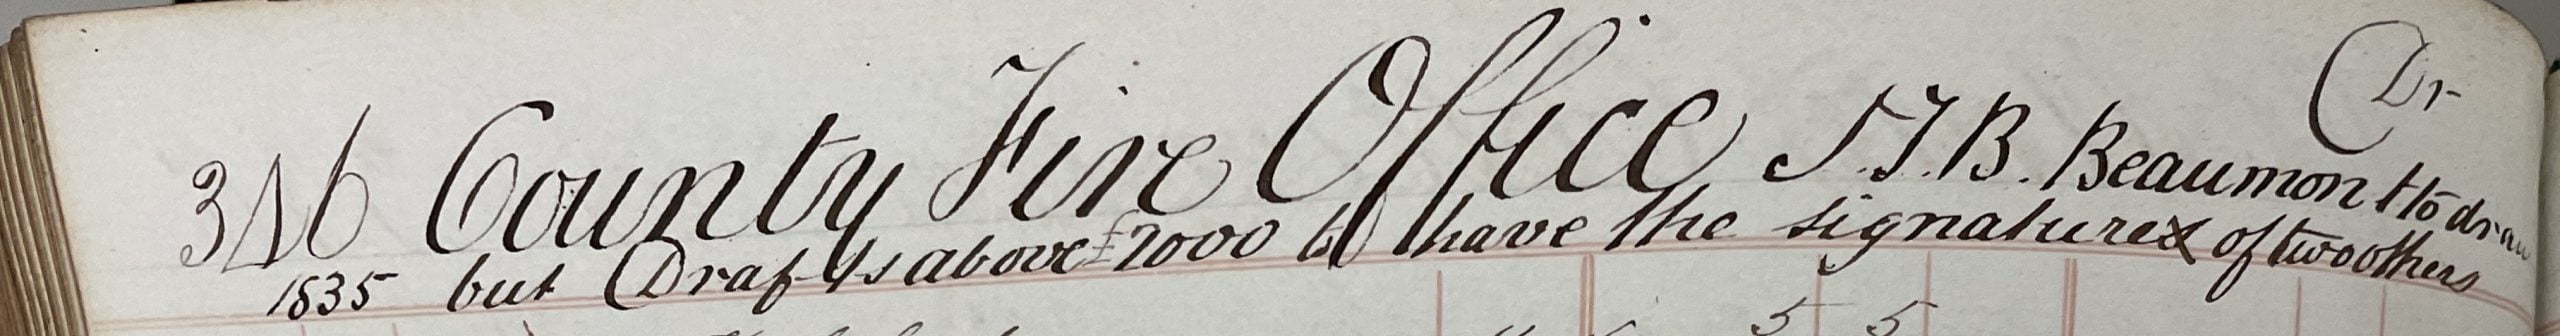 346 County Fire Office J.T.B. Beaumont to draw Dr
1835 but Drafts above £2000 to have the signatures of two others
5 5